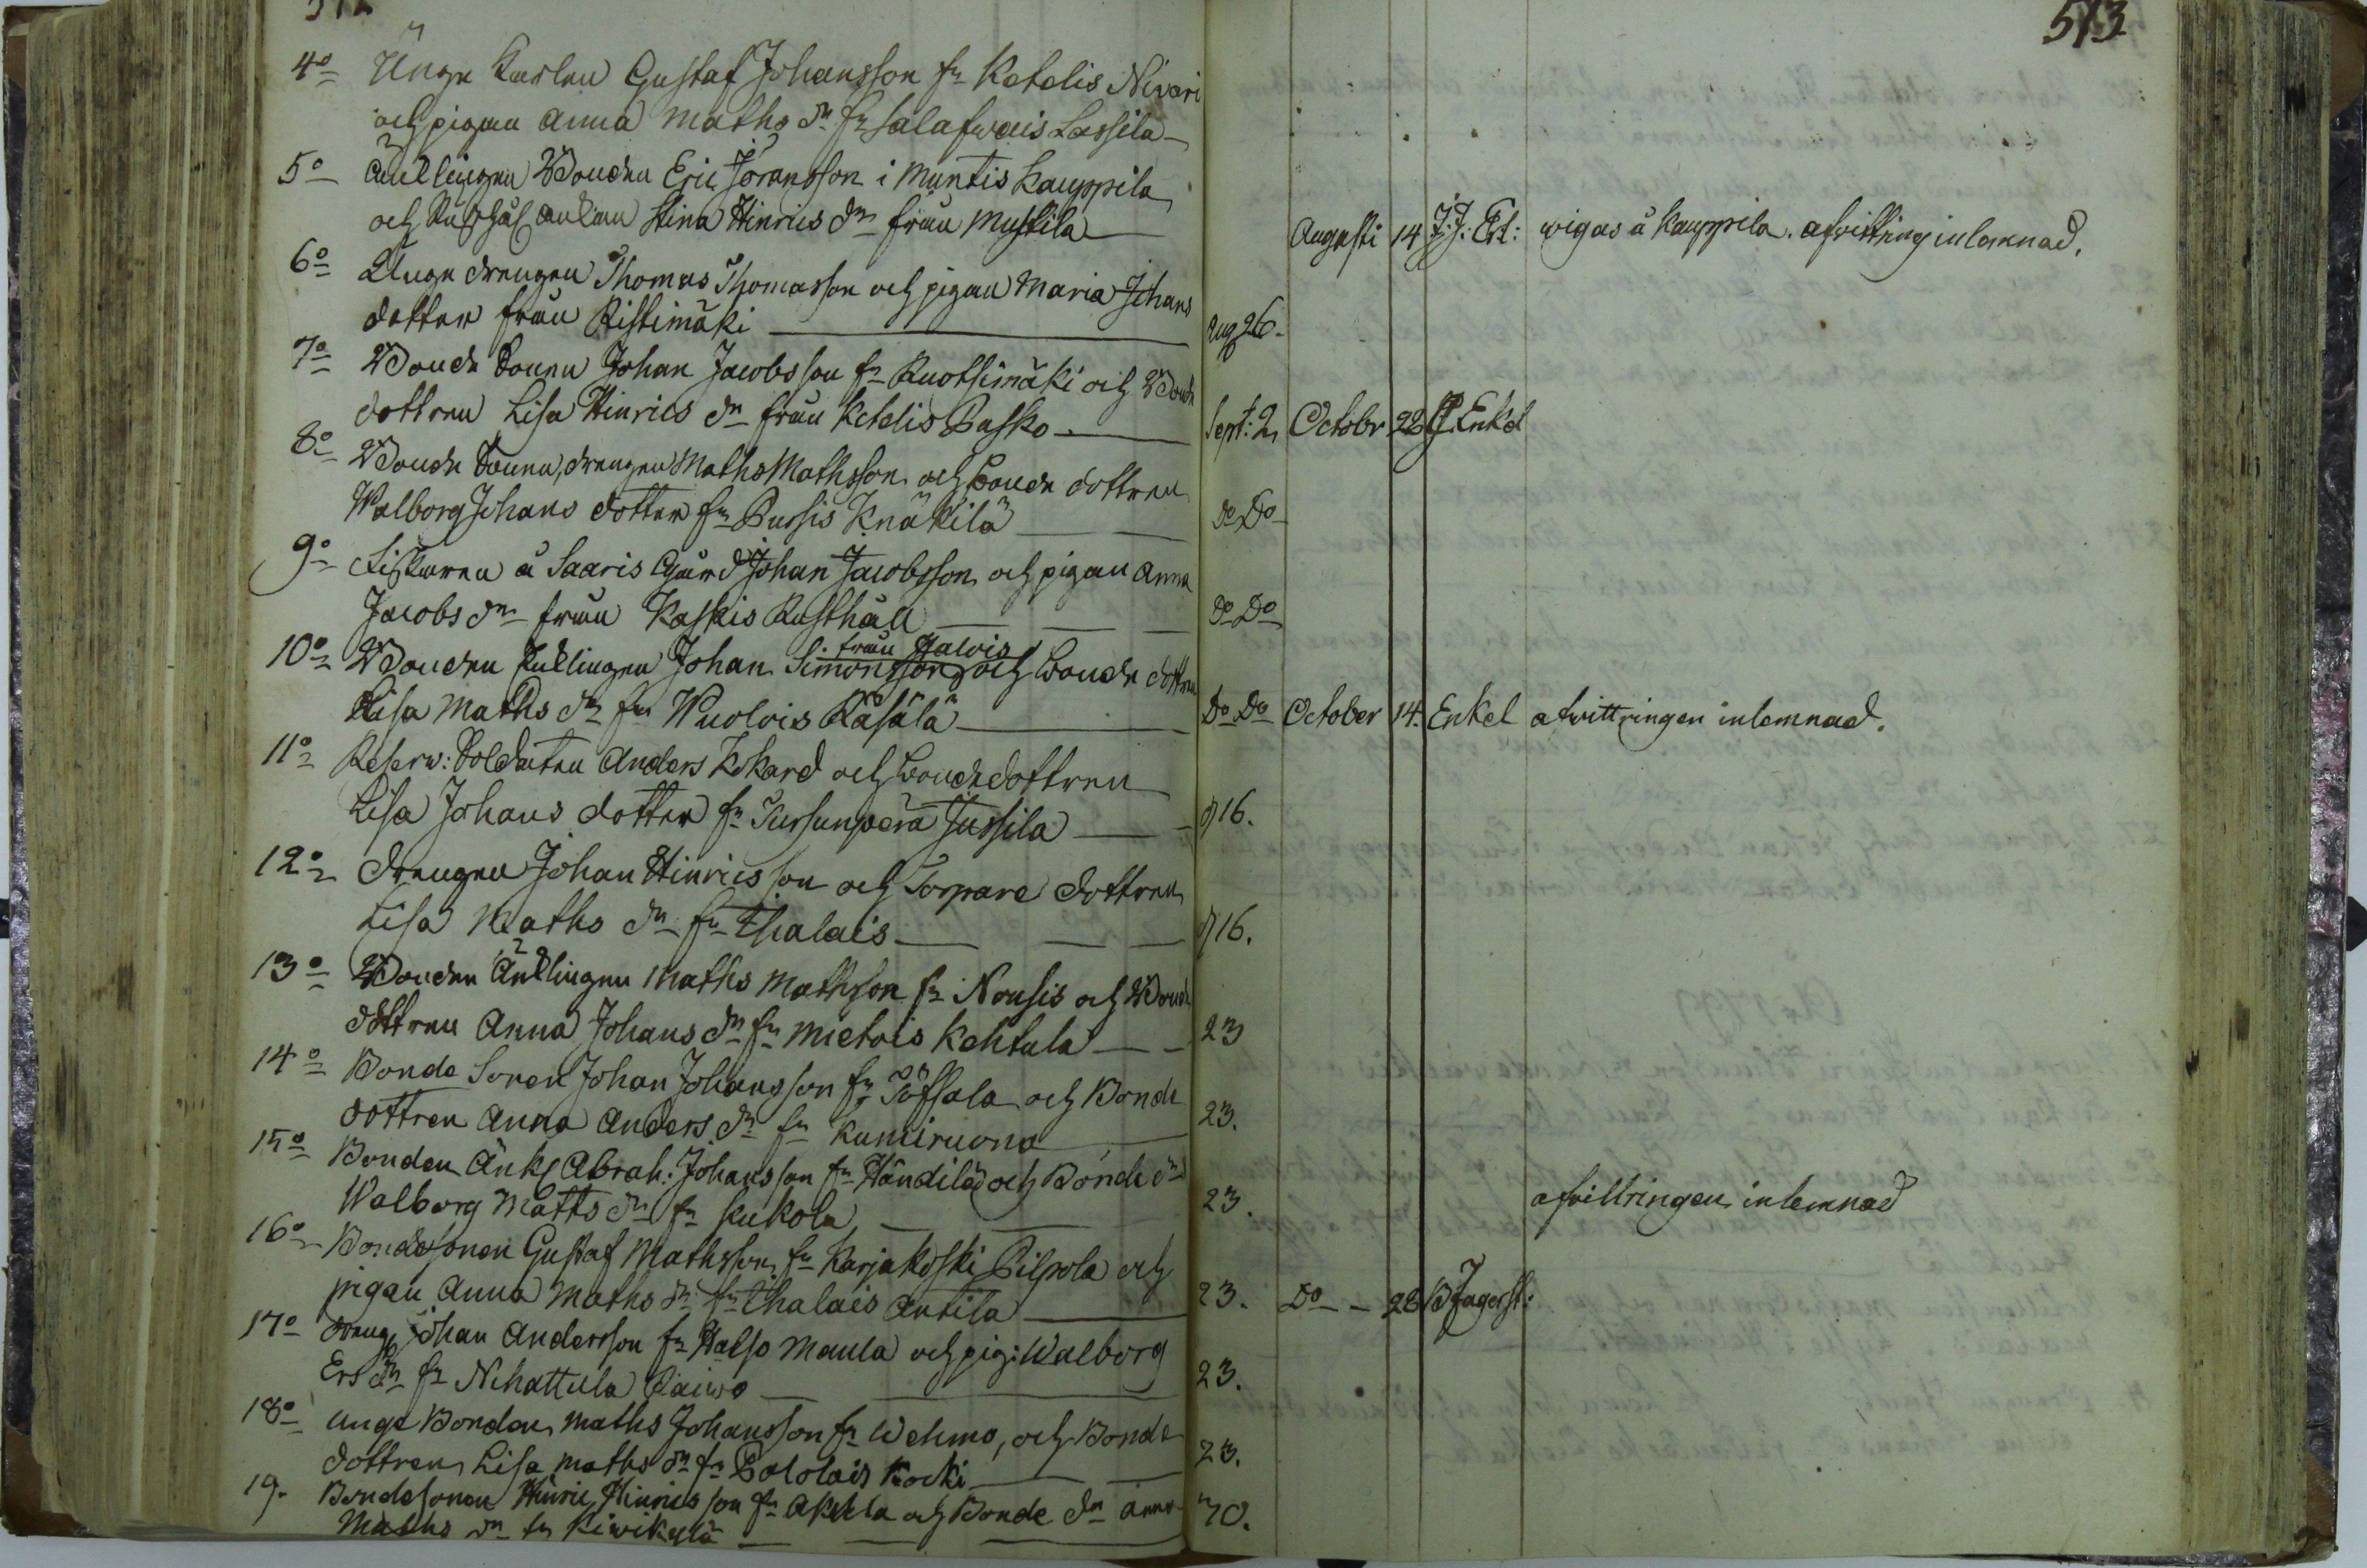 513
4o Unge Karlen Gustaf Johansson fn Ketelis Nivari
och pigan Anna Maths dr fn Salafwais Lassila
5o Änklingen Bonden Eric Jöransson i Muntis Kauppila
och Rusthåls änkan Stina Hinrics dr från Mustila
Augusti 14 J:J: Ert: wigas å Kauppila. afvittring inlemnad.
6o Unge drengen Thomas Thomasson och pigan Maria Johans
dotter från Ristimäki Aug 26.
7o Bonde Sonen Johan Jacobsson fn Ruotsimäki och Bonde
dottren Lisa Hinrics dr från Ketelis Pasko Sept: 2, October 28 Enkel
8o Bonde Sonen, drengen Maths Mathsson och Bonde dottren
Walborg Johans dotter fn Pursis Knäkilä Do Do
9o Fiskaren å Saaris Gård Johan Jacobsson och pigan Anna
Jacobs dr från Kaskis Rusthåll Do Do
från Galvis
10o Bonden Enklingen Johan Simonsson och Bonde dottren
Lisa Maths dr fn Wuolois Räsälä Do Do October 14. Enkel afvittringen inlemnad.
11o Reserv: Soldaten Anders Kokard och Bondedottren
Lisa Johans dotter fn Tursunperä Jussila 16.
12o Drengen Johan Hinricsson och Torpare dottren
Lisa Maths dr fn Ihalais 16.
13o Bonden Änklingen Maths Mathsson fn Nousis och Bonde
dottren Anna Johans dr fn Mietois Kehtula 23
14o Bonde Sonen Johan Johansson fn Töffsala och Bonde
dottren Anna Anders dr fn Kunniruona 23.
15o Bonden Änkl Abrah: Johansson fn Händilä och Bonde dr
Walborg Matts dr fn Kukola 23. afvittringen inlemnad
16o Bondesonen Gustaf Mathsson fn Karjakoski Pilpola och
pigan Anna Maths dr fn Ihalais Antila 23. Do 28 Jagerst:
17o dreng Johan Andersson fn Halso Maula och pig: Walborg
Ers dr fn Nihattula Paiwo 23.
18o unge Bonden Maths Johansson fn Wehmo, och Bonde
dottren Lisa Maths dr fn Pololais Kocki 23.
19. Bondesonen Hinric Hinricsson fn Akkla och Bonde dr Anna
Maths dr fn Kiwikylä 30.